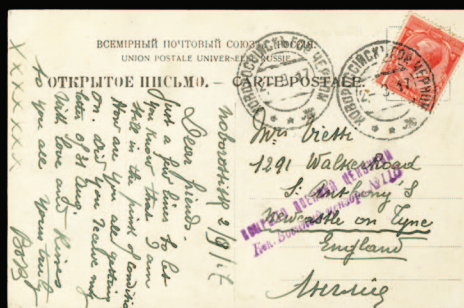 ВСЕМІРНЫЙ ПОЧТОВЫЙ СОЮЗЪ. РОССІЯ.
UNION POSTALE UNIVERSELLE. RUSSIE.
ОТКРЫТОЕ ПИСЬМО. — CARTE POSTALE.
НОВОРОССІЙСКЪ ЧЕРНОМ
НОВОРОССІЙСКЪ ЧЕРНОМ
2/9/17
Dear friends.
Just a few lines to let
you know that I am
still in the pink of condition
How are you all getting
on. Did you receive my
letter of 31 Aug.
With love and kisses
to you all Yours truly
Bob
X X X X X X
Mrs
1291 Walker Road
St Anthony's
Newcastle on Tyne
England
Англія
ВОЕННОЙ ЦЕНЗУРОЙ
Военный Цензоръ